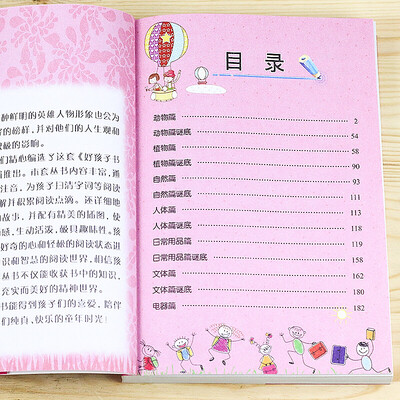 种鲜明的英雄人物形象也会为
的榜样,并对他们的人生观和
极的影响。
们精心编选了这套《好孩子书
推出。本套丛书内容丰富,通
注音,为孩子扫清字词等阅读
解并积累阅读点滴。还详细地
故事,并配有精美的插图,使
感,生动活泼,极具趣味性。孩
好奇的心和轻松的阅读状态进
识和智慧的阅读世界,相信孩
丛书不仅能收获书中的知识,
充实而美好的精神世界。
书能得到孩子们的喜爱,陪伴
们纯真、快乐的童年时光!
目录
动物篇 2
动物篇谜底 54
植物篇 58
植物篇谜底 90
自然篇 93
自然篇谜底 111
人体篇 113
人体篇谜底 118
日常用品篇 119
日常用品篇谜底 158
文体篇 162
文体篇谜底 180
电器篇 182